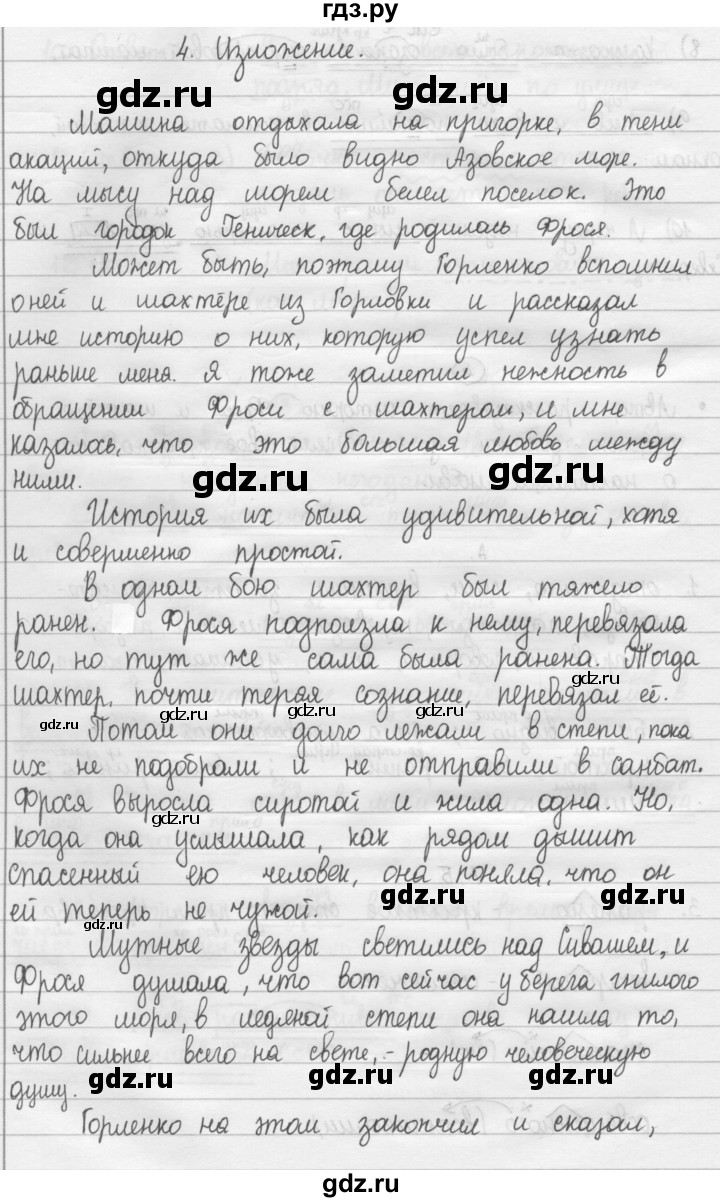 гдз.ру
4. Изложение.
gdz.ru gdz.ru
Машина отдыхала на пригорке, в тени
акаций, откуда было видно Азовское море.
На мысу над морем белел поселок. Это
был городок Геническ, где родилась Фрося.
Может быть, поэтому Горленко вспомнил
о ней и шахтёре из Горловки и рассказал
мне историю о них, которую успел узнать
раньше меня. Я тоже заметил нежность в
обращении Фроси с шахтером, и мне
казалось, что это большая любовь между
ними.
gdz.ru gdz.ru
История их была удивительной, хотя
и совершенно простой.
В одном бою шахтер был тяжело
ранен. Фрося подползла к нему, перевязала
его, но тут же сама была ранена. Тогда
шахтер, почти теряя сознание, перевязал её.
gdz.ru gdz.ru gdz.ru gdz.ru
Потом они долго лежали в степи, пока
их не подобрали и не отправили в санбат.
Фрося выросла сиротой и жила одна. Но,
gdz.ru gdz.ru
когда она услышала, как рядом дышит
спасенный ею человек, она поняла, что он
ей теперь не чужой.
gdz.ru gdz.ru
Мутные звезды светились над Сивашем, и
Фрося думала, что вот сейчас у берега гнилого
этого моря, в ледяной степи она нашла то,
что сильнее всего на свете, - родную человеческую
душу.
gdz.ru gdz.ru gdz.ru
Горленко на этом закончил и сказал,